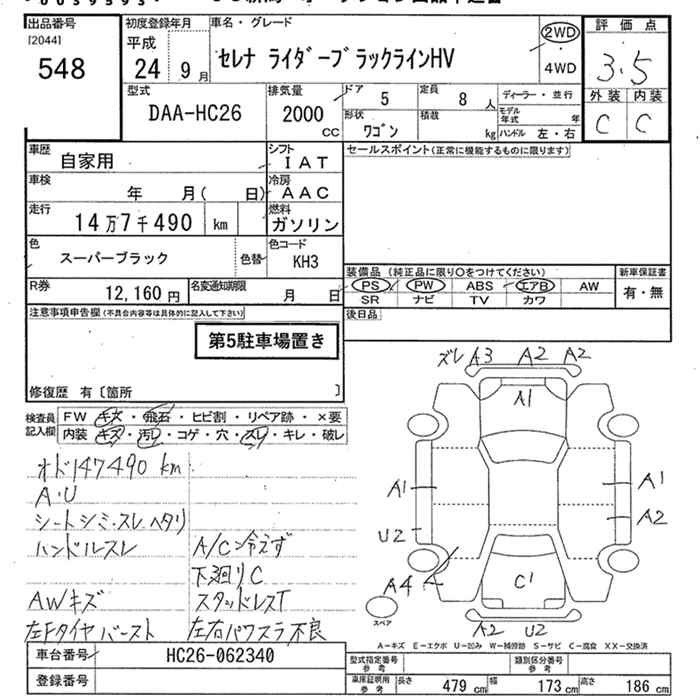 出品番号
[2044]
548
初度登録年月
平成
24 9月
車名・グレード
セレナ ライダーブラックラインHV
2WD
・
4WD
評価点
3.5
外装 内装
C C
型式
DAA-HC26
排気量
2000
CC
ドア 5
定員 8 人
ディーラー・並行
形状
ワゴン
積載
kg
モデル年式 年
ハンドル 左・右
車歴
自家用
シフト
IAT
車検
年 月( 日)
冷房
AAC
走行
14万7千490 km
燃料
ガソリン
色
スーパーブラック
色替
色コード
KH3
R券
12,160円
名変通知期限
月 日
セールスポイント(正常に機能するものに限ります)
装備品(純正品に限り○をつけてください)
PS PW ABS エアB AW
SR ナビ TV カワ
新車保証書
有・無
後日品
注意事項申告欄(不具合内容等は具体的に記入して下さい)
第5駐車場置き
修復歴 有〔箇所 〕
検査員
記入欄
FW キズ・飛石・ヒビ割・リペア跡・×要
内装 キズ・汚れ・コゲ・穴・スレ・キレ・破レ
オド147490km
A・U
シートシミ・スレヘタリ
ハンドルスレ
A/C冷えず
下廻りC
AWキズ
スタッドレスT
左Fタイヤバースト
左右パワスラ不良
ズレ A3 A2 A2
A1
A1
A1
A2
U2
A4
C1
A2 U2
スペア
A-キズ E-エクボ U-凹み W-補修跡 S-サビ C-腐食 XX-交換済
車台番号
HC26-062340
登録番号
型式指定番号
参考
類別区分番号
参考
車庫証明用
参考
長さ 479cm 幅 173cm 高さ 186cm